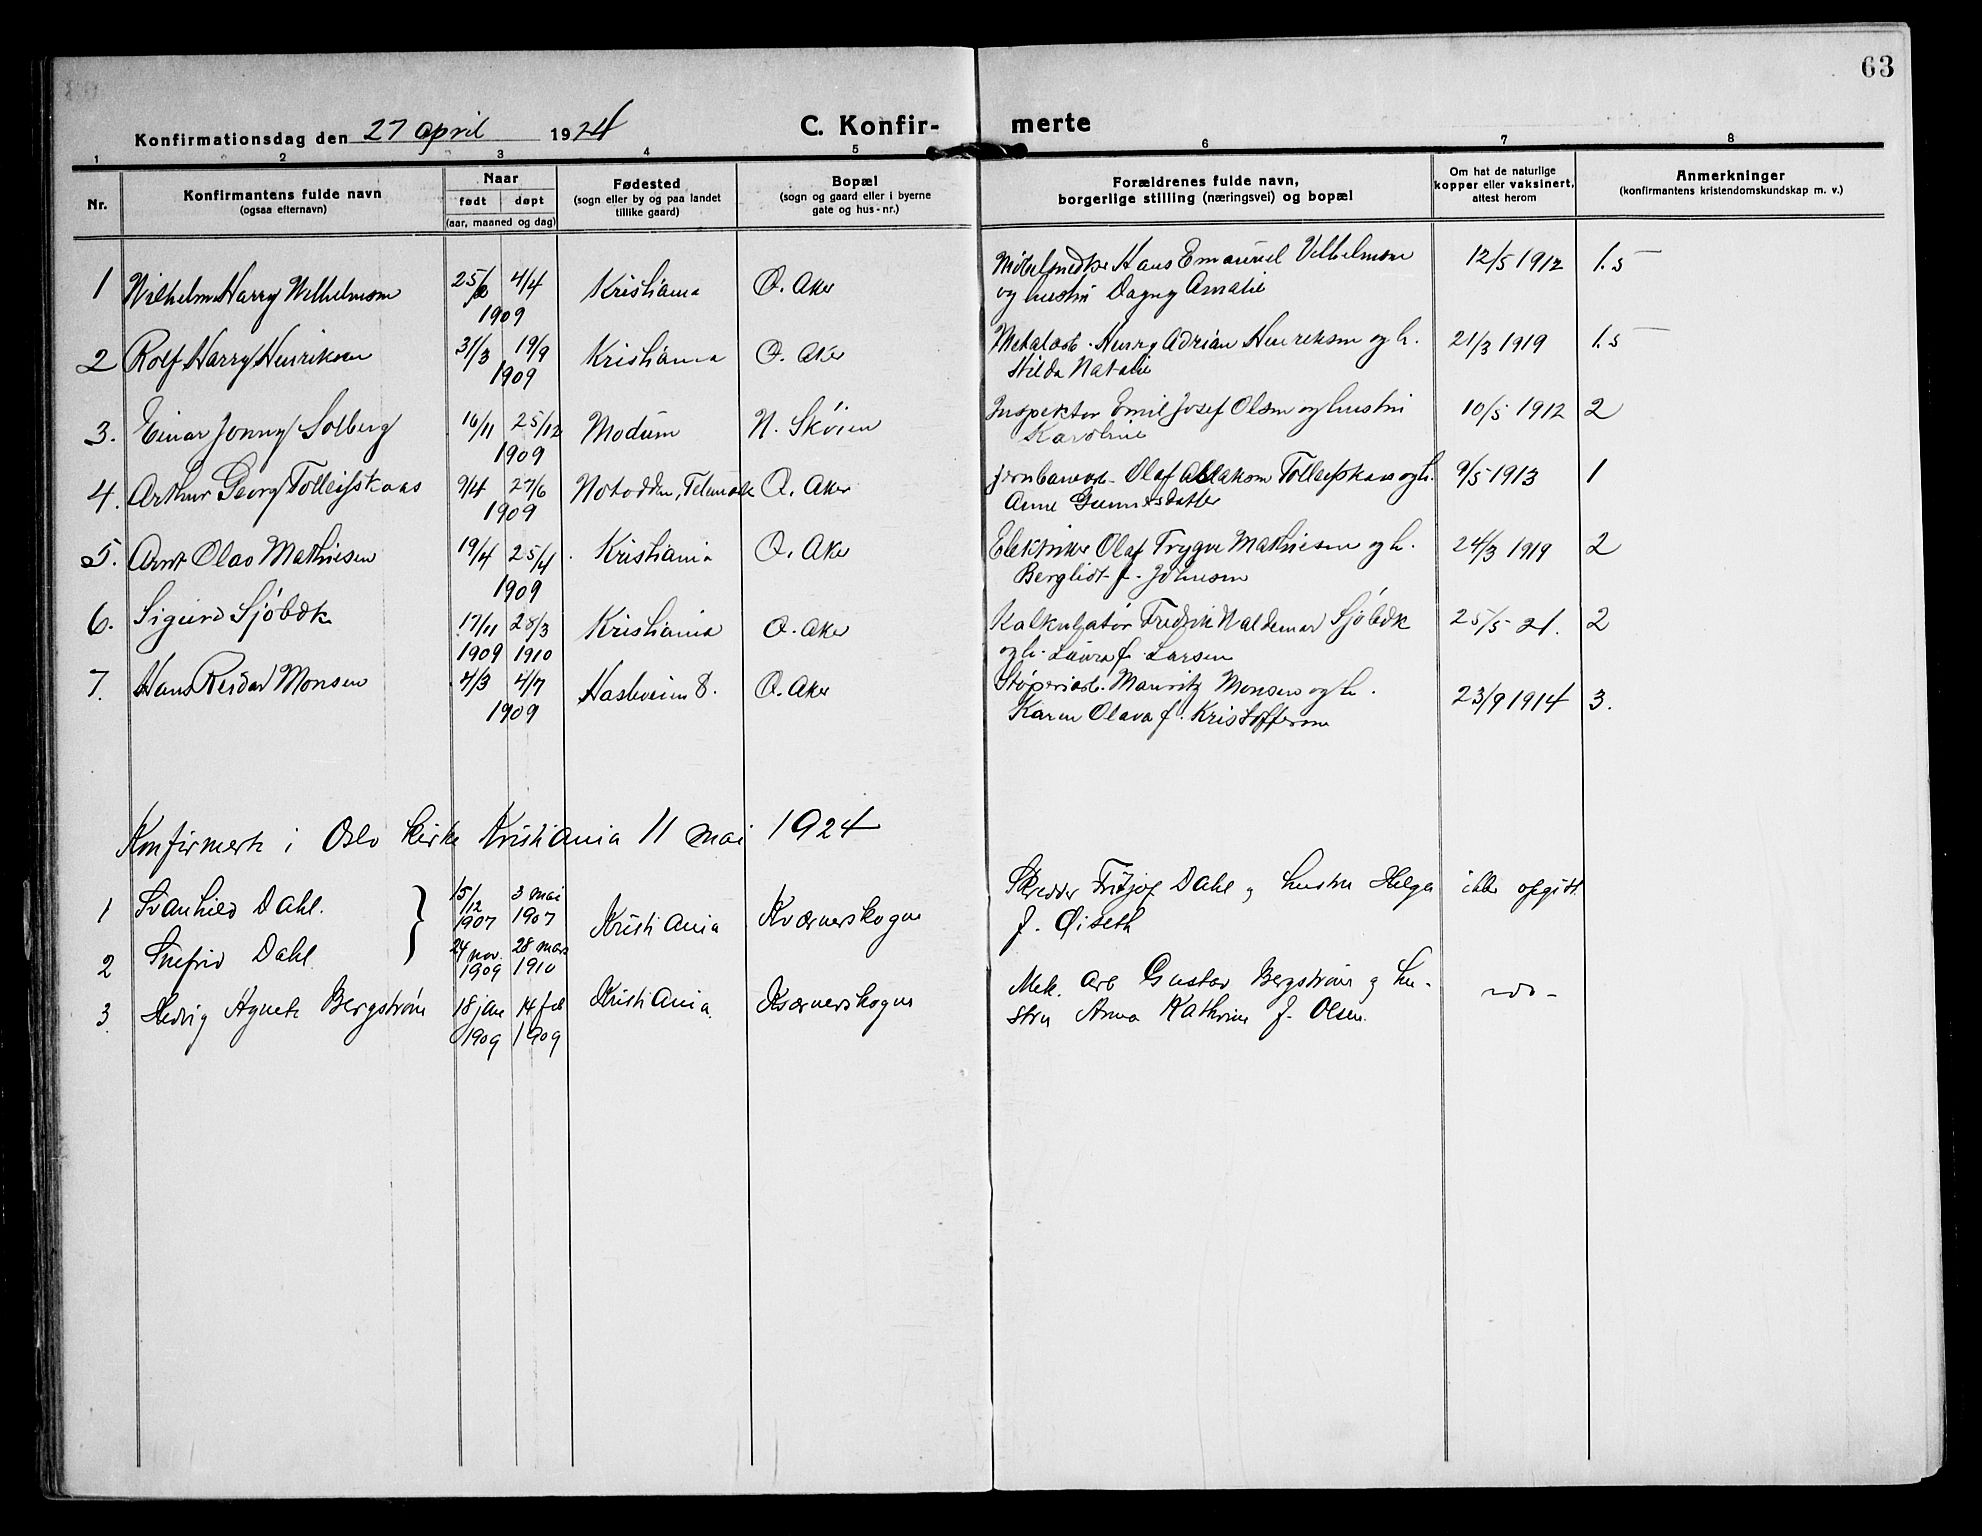 63
Konfirmationsdag den 27 april 1924
C. Konfirmerte
1 2 3 4 5 6 7 8
Nr.
Konfirmantens fulde navn
(ogsaa efternavn)
Naar
født døpt
(aar, maaned og dag)
Fødested
(sogn eller by og paa landet
tillike gaard)
Bopæl
(sogn og gaard eller i byerne
gate og hus-nr.)
Forældrenes fulde navn,
borgerlige stilling (næringsvei) og bopæl
Om hat de naturlige
kopper eller vaksinert,
attest herom
Anmerkninger
(konfirmantens kristendomskundskap m. v.)
1 Wilhelm Harry Wilhelmsen 25/ 4/4 1909 Kristiania Ø. Aker Hans Emanuel Vilhelmsen 12/5 1912 1.5
og hustru Dagny Amalie
2 Rolf Harry Henriksen 31/3 19/9 1909 Kristiania Ø. Aker Metalarb. Henry Adrian Henriksen og h. 21/3 1919 1.5
Hilda Natalie
3. Einar Jonny Solberg 16/11 25/12 1909 Modum N. Skøien Inspektør Emil Josef Olsen og hustru 10/5 1912 2
Karoline
4. Arthur Georg Tolleifskaas 9/4 27/6 1909 Notodden, Telemark Ø. Aker Jernbanearb. Olaf Aslakson Tolleifskaas og h. 9/5 1913 1
Anne Gunnesdatter
5. Arnt Olav Mathiesen 19/4 25/4 1909 Kristiania Ø. Aker Elektriker Olaf Trygve Mathiesen og h. 24/3 1919 2
Bergliot f. Johnsen
6. Sigurd Sjöbæk 17/11 1909 28/3 1910 Kristiania Ø. Aker Kalkulatør Fredrik Valdemar Sjöbæk 25/5 21. 2
og h. Laura f. Larsen
7. Hans Reidar Monsen 4/3 4/7 1909 Hasleveien 8. Ø. Aker Støperiarb. Mauritz Monsen og h. 23/9 1914 3.
Karen Olava f. Kristoffersen
Konfirmert i Oslo kirke Kristiania 11 mai 1924
1 Svanhild Dahl. 15/12 1907 3 mai 1907 Kristiania Kværnerskogen Skredder Fritjof Dahl og hustru Helga ikke opgitt
f. Øiseth
2 Snefrid Dahl. 24 nov. 1909 28 mars 1910
3. Hedvig Agnete Bergstrøm 18 jan 1909 14 feb 1909 Kristiania. Kværnerskogen Mek. arb Gustav Bergstrøm og hu-
stru Anna Kathrine f. Olsen.